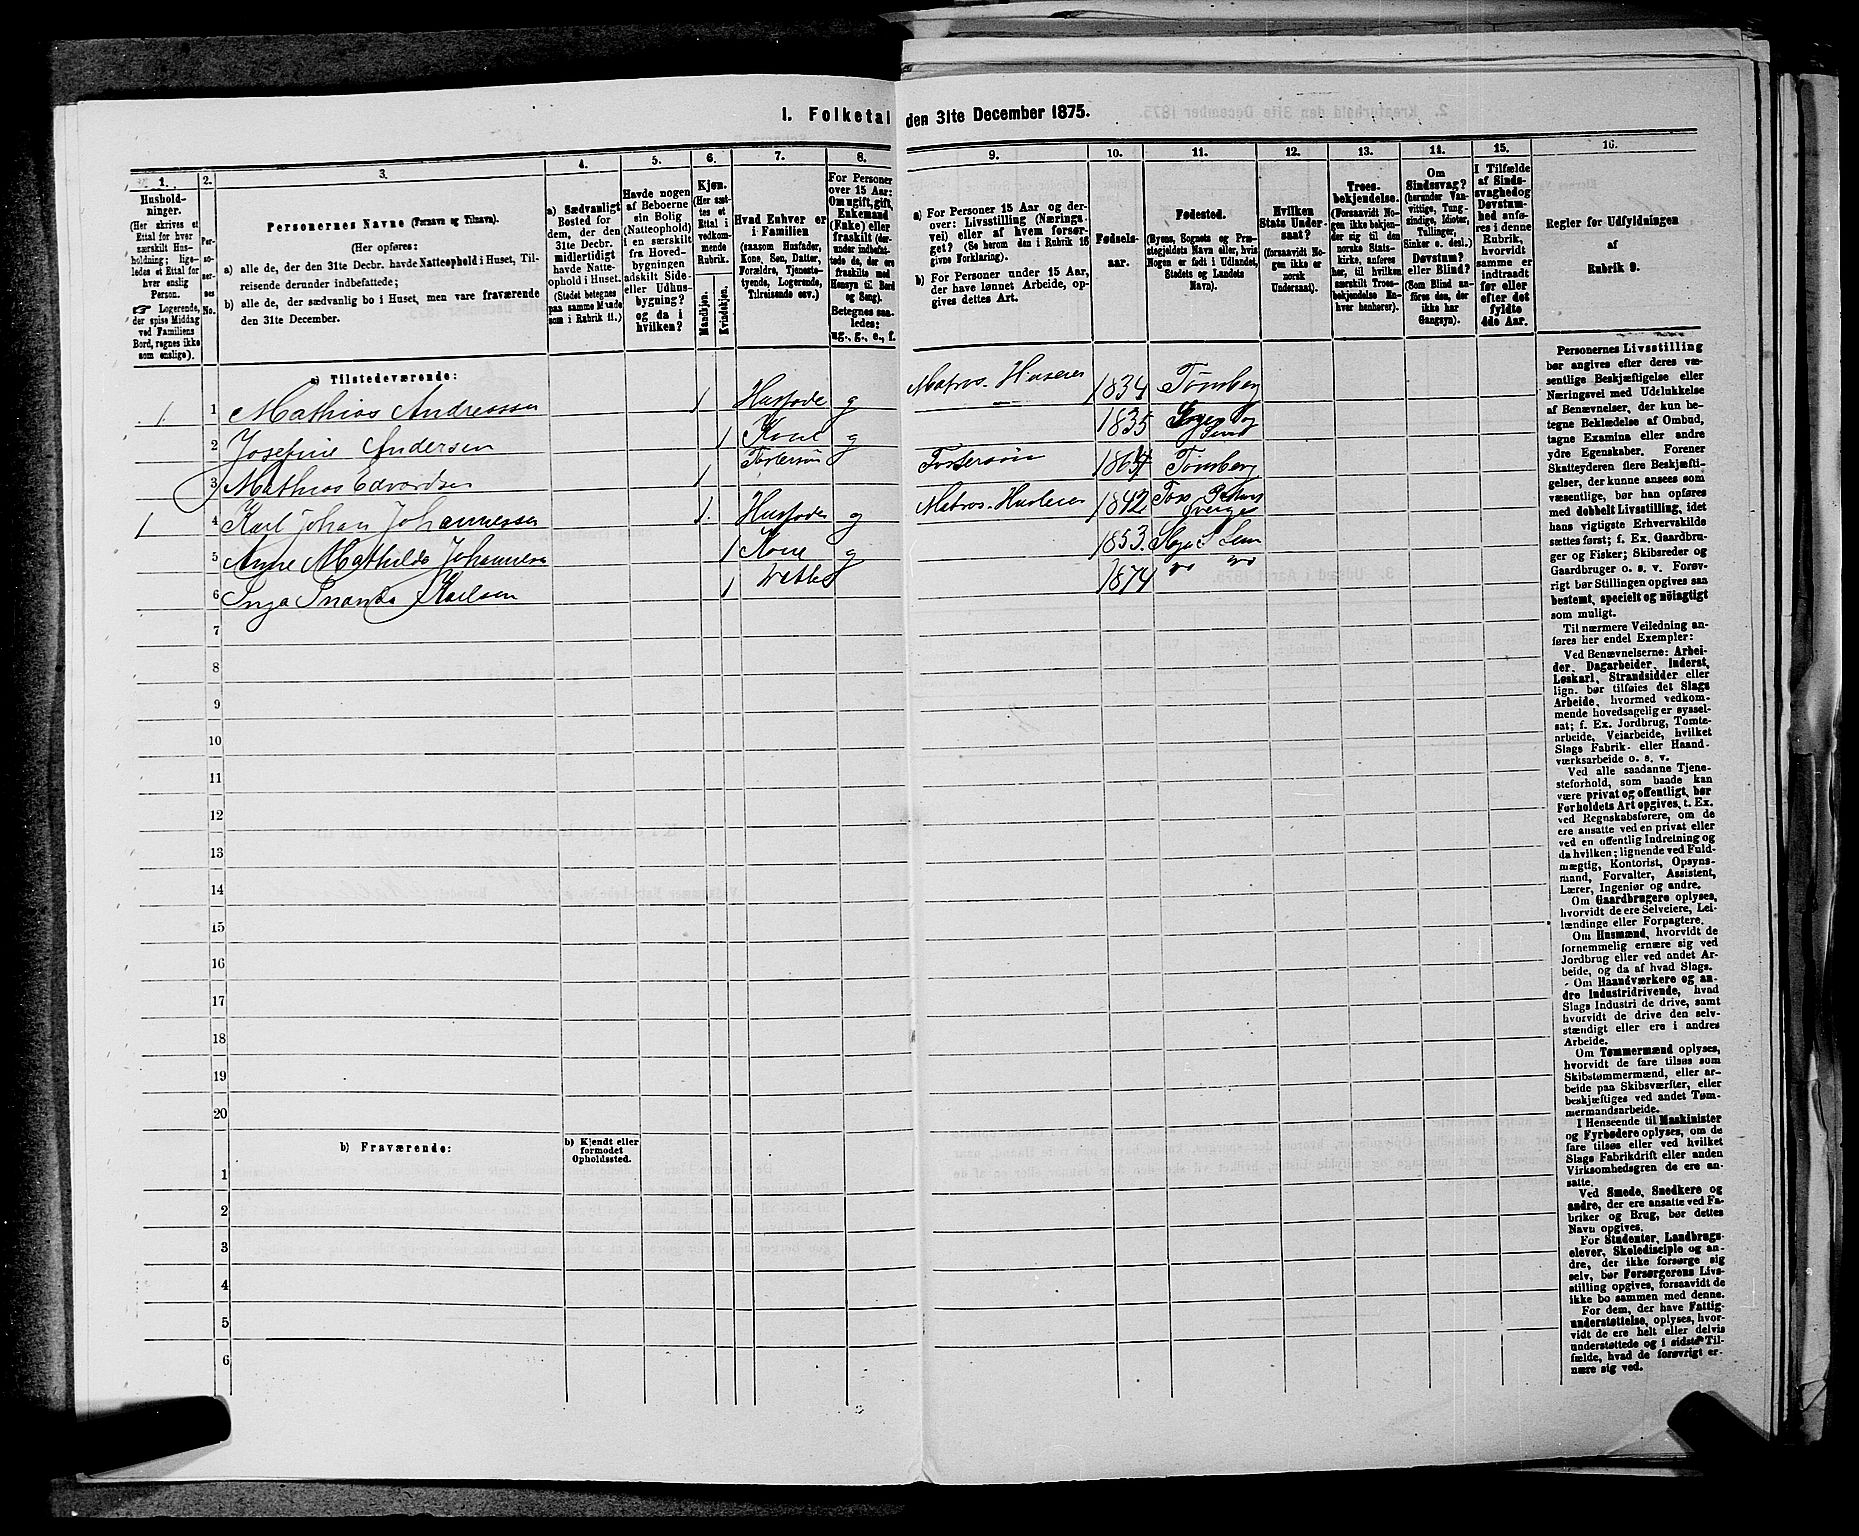 1. Folketal den 31te December 1875.
1.
Hushold-
ninger.
(Her skrives et
Ettal for hver
særskilt Hus-
holdning; lige-
ledes et Ettal for
hver enslig
Person.
☞ Logerende,
der spise Middag
ved Familiens
Bord, regnes ikke
som enslige).
2.
Per-
so-
ner-
nes
No.
3.
Personernes Navne (Fornavn og Tilnavn).
(Her opføres:
a) alle de, der den 31te Decbr. havde Natteophold i Huset, Til-
reisende derunder indbefattede;
b) alle de, der sædvanlig bo i Huset, men vare fraværende
den 31te December.
4.
a) Sædvanligt
Bosted for
dem, der den
31te Decbr.
midlertidigt
havde Natte-
ophold i Huset.
(Stedet betegnes
paa samme Maade
som i Rubrik 11.)
5.
Havde nogen
af Beboerne
sin Bolig
(Natteophold)
i en særskilt
fra Hoved-
bygningen
adskilt Side-
eller Udhus-
bygning?
og da i
hvilken?
6.
Kjøn.
(Her sæt-
tes et
Ettal i
vedkom-
mende
Rubrik.
Mandkjøn.
Kvindekjøn.
7.
Hvad Enhver er
i Familien
(saasom Husfader,
Kone, Søn, Datter,
Forældre, Tjeneste-
tyende, Logerende,
Tilreisende osv.)
8.
For Personer
over 15 Aar:
Om ugift, gift,
Enkemand
(Enke) eller
fraskilt (der-
under indbefat-
tede de, der ere
fraskilte med
Hensyn til Bord
og Seng).
Betegnes saa-
ledes:
ug., g., e., f.
9.
a) For Personer 15 Aar og der-
over: Livsstilling (Nærings-
vei) eller af hvem forsør-
get? (Se herom den i Rubrik 16
givne Forklaring).
b) For Personer under 15 Aar,
der have lønnet Arbeide, op-
gives dettes Art.
10.
Fødsels-
aar.
11.
Fødested.
(Byens, Sognets og Præ-
stegjeldets Navn eller, hvis
Nogen er født i Udlandet,
Stedets og Landets
Navn).
12.
Hvilken
Stats Under-
saat?
(forsaavidt No-
gen ikke er
norsk
Undersaat).
13.
Troes-
bekjendelse.
(Forsaavidt No-
gen ikke bekjen-
der sig til den
norske Stats-
kirke, anføres
her, til hvilken
særskilt Troes-
bekjendelse En-
hver henhører).
14.
Om
Sindssvag?
(herunder Van-
vittige, Tung-
sindige, Idioter,
Tullinger,
Sinker o. desl.)
Døvstum?
eller Blind?
(Som Blind an-
føres den, der
ikke har
Gangsyn).
15.
I Tilfælde
af Sinds-
svaghed og
Døvstum-
hed anfø-
res i denne
Rubrik,
hvorvidt
samme er
indtraadt
før eller
efter det
fyldte
4de Aar.
16.
Regler for Udfyldningen
af
Rubrik 9.
a) Tilstedeværende:
1 1 Mathias Andreassen 1 Husfade g Matros. Huseier 1834 Tønsberg
2 Josefine Andersen 1 Kone g 1835 Sogen og Sem
3 Mathias Edvardsen 1 Fostersøn Fostersøn 1864 Tønsberg
1 4 Karl Johan Johannessen 1. Husfader g Matros. Husleier 1842 Sverige
5 Anne Mathilde Johannesen 1 Kone g 1853. Sem
6 Inga Karlsen 1 Datter 1874 do do
7
8
9
10
11
12
13
14
15
16
17
18
19
20
b) Fraværende:
b) Kjendt eller
formodet
Opholdssted.
1
2
3
4
5
6
Personernes Livsstilling
bør angives efter deres væ-
sentlige Beskjæftigelse eller
Næringsvei med Udelukkelse
af Benævnelser, der kun be-
tegne Beklædelse af Ombud,
tagne Examina eller andre
ydre Egenskaber. Forener
Skatteyderen flere Beskjæfti-
gelser, der kunne ansees som
væsentlige, bør han opføres
med dobbelt Livsstilling, idet
hans vigtigste Erhvervskilde
sættes først; f. Ex. Gaardbru-
ger og Fisker; Skibsreder og
Gaardbruger o. s. v. Forøv-
rigt bør Stillingen opgives saa
bestemt, specielt og nøiagtigt
som muligt.
Til nærmere Veiledning an-
føres her endel Exempler:
Ved Benævnelserne: Arbei-
der, Dagarbeider, Inderst,
Løskarl, Strandsidder eller
lign. bør tilføies det Slags
Arbeide, hvormed vedkom-
mende hovedsagelig er syssel-
sat; f. Ex. Jordbrug, Tomte-
arbeide, Veiarbeide, hvilket
Slags Fabrik- eller Haand-
værksarbeide o. s. v.
Ved alle saadanne Tjene-
steforhold, som baade kan
være privat og offentligt, bør
Forholdets Art opgives, t. Ex.
ved Regnskabsførere, om de
ere ansatte ved en privat eller
ved en offentlig Indretning og
da hvilken; lignende ved Fuld-
mægtig, Kontorist, Opsyns-
mand, Forvalter, Assistent,
Lærer, Ingeniør og andre.
Om Gaardbrugere oplyses,
hvorvidt de ere Selveiere, Lei-
lændinge eller Forpagtere.
Om Husmænd, hvorvidt de
fornemmelig ernære sig ved
Jordbrug eller ved andet Ar-
beide, og da af hvad Slags.
Om Haandværkere og an-
dre Industridrivende, hvad
Slags Industri de drive, samt
hvorvidt de drive den selv-
stændigt eller ere i andres
Arbeide.
Om Tømmermænd oplyses,
hvorvidt de fare tilsøs som
Skibstømmermænd, eller ar-
beide paa Skibsværfter, eller
beskjæftiges ved andet Tøm-
mermandsarbeide.
I Henseende til Maskinister
og Fyrbødere oplyses, om de
fare tilsøs eller ved hvilket
Slags Fabrikdrift eller anden
Virksomhedsgren de ere an-
satte.
Ved Smede, Snedkere og
andre, der ere ansatte ved Fa-
briker og Brug, bør dettes
Navn opgives.
For Studenter, Landbrugs-
elever, Skoledisciple og an-
dre, der ikke forsørge sig
selv, bør Forsørgerens Livs-
stilling opgives, forsaavidt de
ikke bo sammen med denne.
For dem, der have Fattig-
understøttelse, oplyses, hvor-
vidt de ere helt eller delvis
understøttede og i sidste Til-
fælde, hvad de forøvrigt er-
nære sig ved.